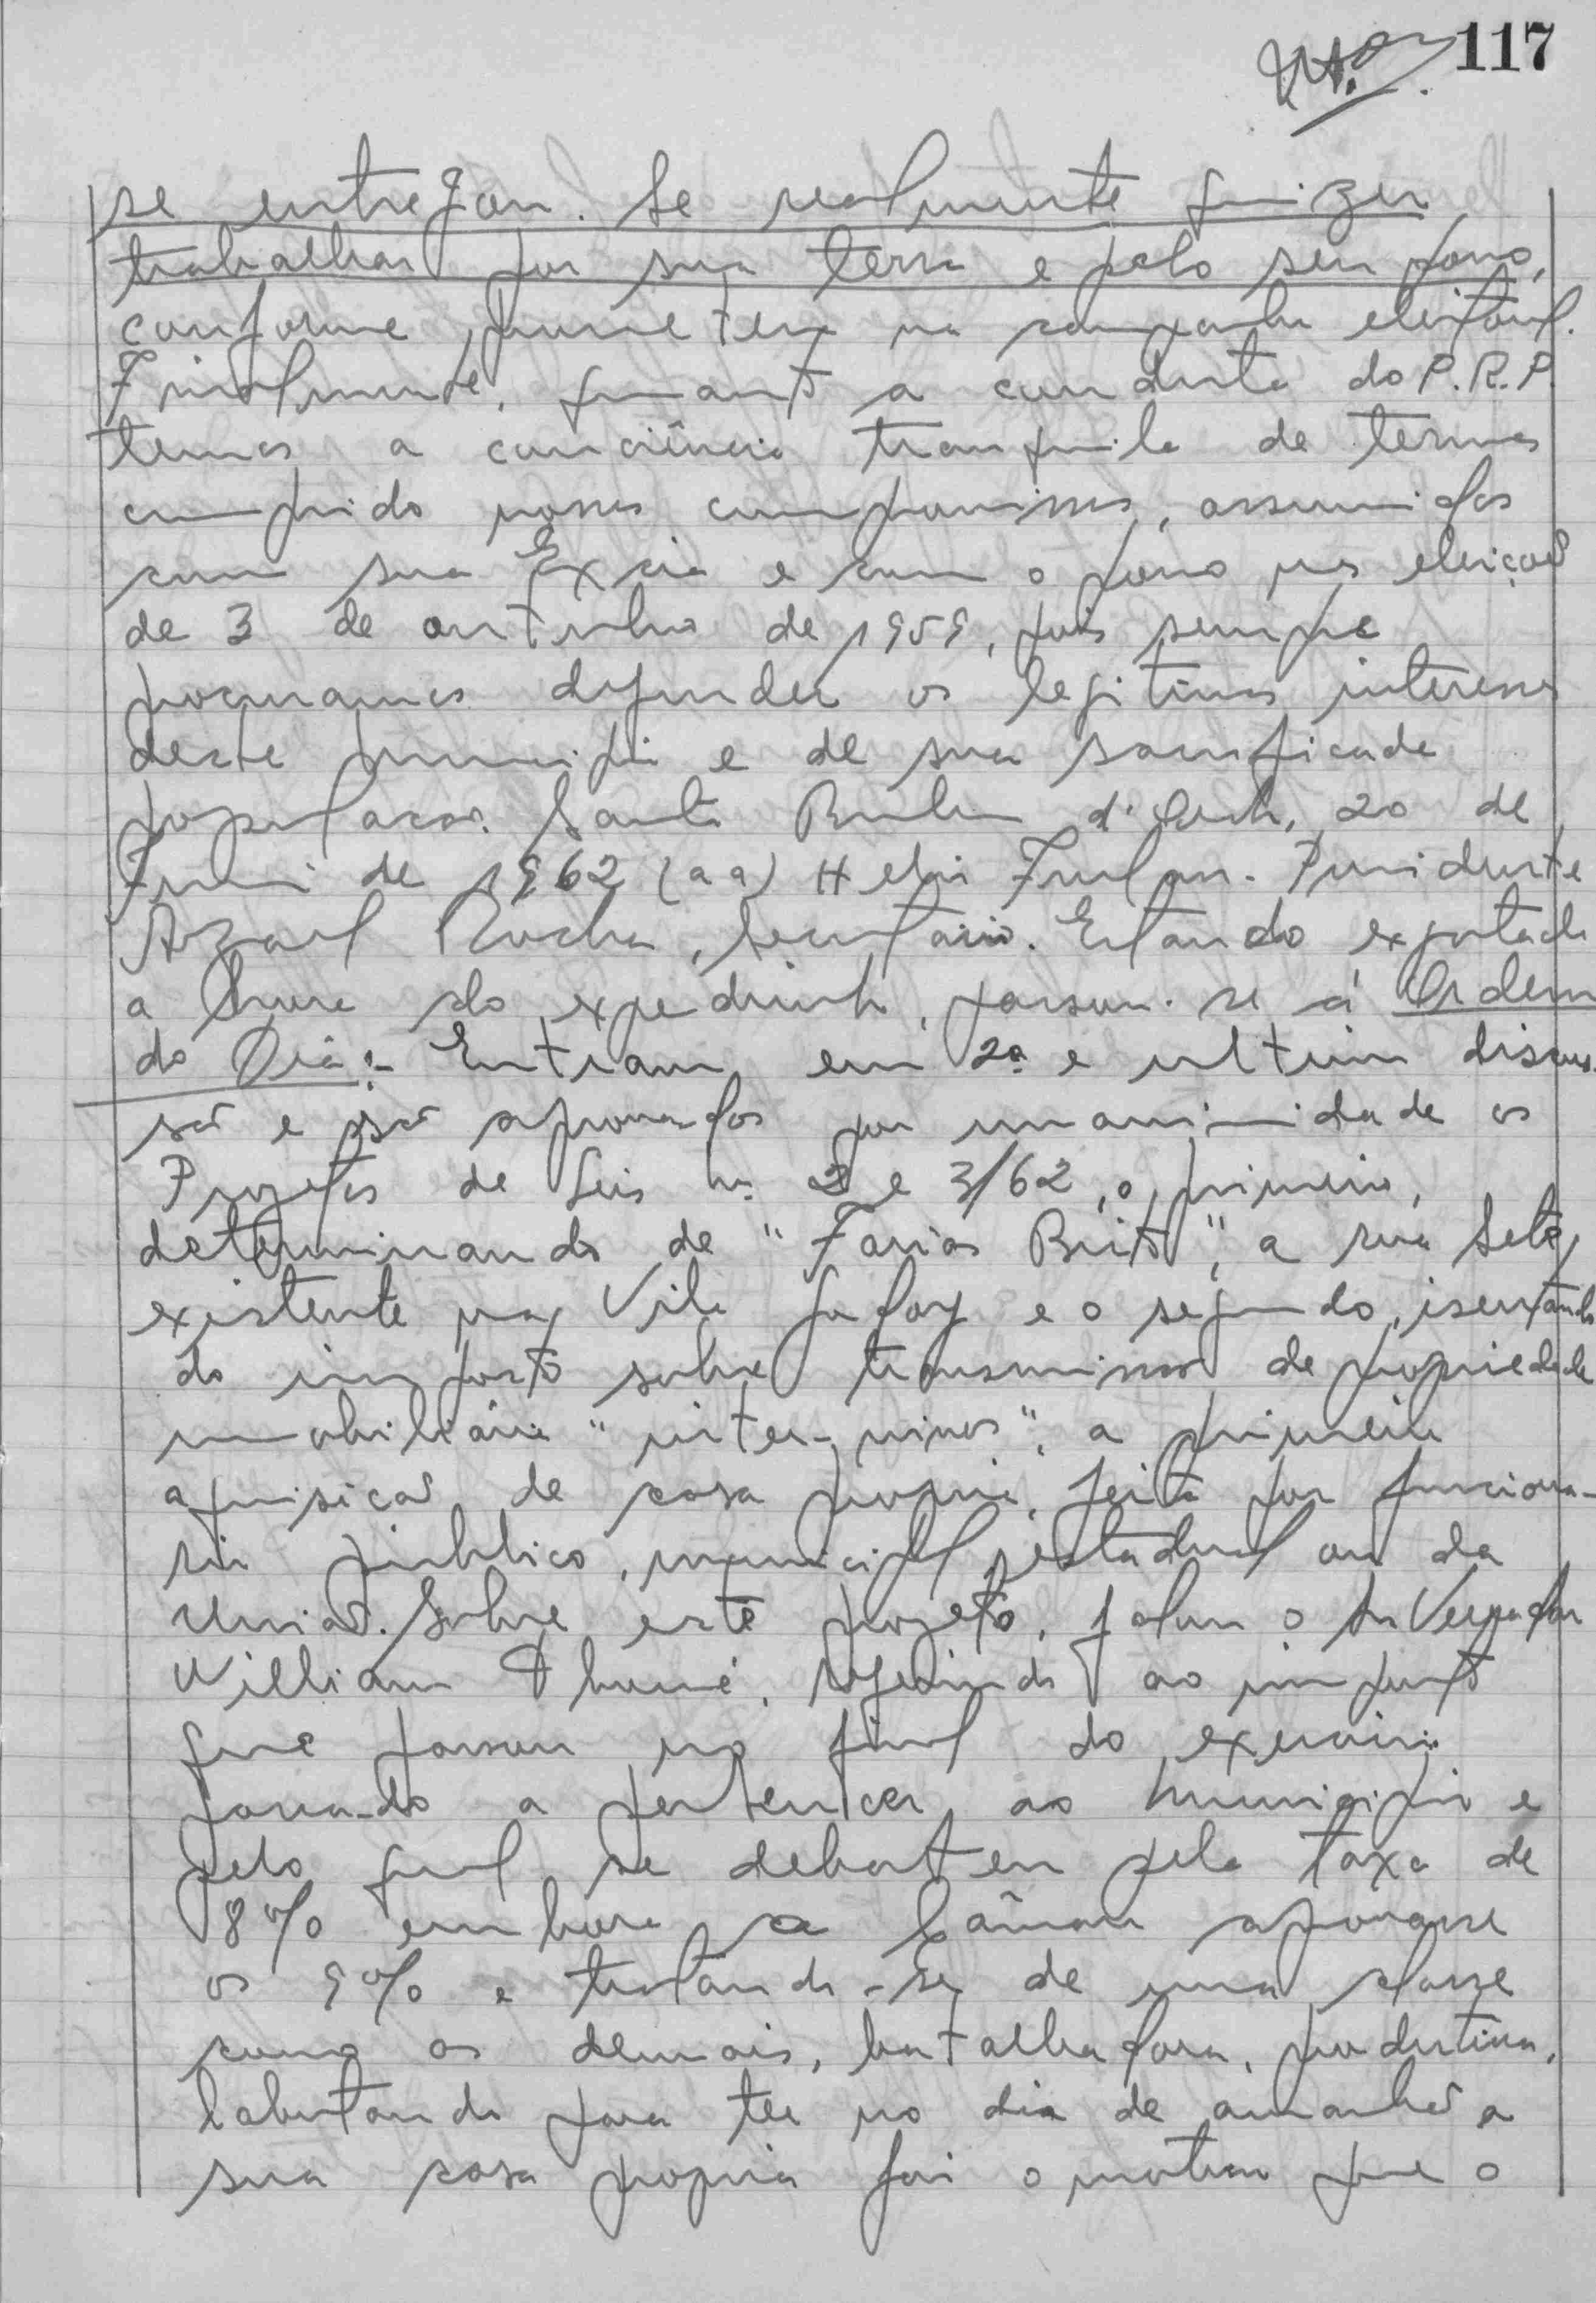 117
se entregou. Se realmente quizer
trabalhar por sua terra e pelo seu povo,
conforme prometera na campanha eleitoral.
Finalmente, quanto a conduta do P.R.P.
temos a conciência tranquila de termos
cumprido nossos compromissos, assumidos
com sua Excia e com o povo nas eleições
de 3 de outubro de 1959, pois sempre
procuramos defender os legitimos interesses
deste municipio e de sua sacrificada
população. Santa Barbara d'Oeste, 20 de
de 1962 (aa) Helio Furlan. Presidente
Azael Rocha, Secretario. Estando exgotada
a hora do expediente, passou-se á Ordem
do Dia:- Entram em 2a e ultima discus-
são e são aprovados por unanimidade os
Projetos de Leis ns. 2 e 3/62, o primeiro,
determinando de "Farias Brito", a rua Sete,
existente na Vila e o segundo, isentando
do imposto sobre transmissão de propriedade
imobiliária "inter-vivos", a primeira
aquisição de casa propria, feita por funciona-
rio público, municipal, estadual ou da
União. Sobre este projeto, falou o Sr Vereador
William, referindo ao imposto
que passou no final do exercicio
passado a pertencer ao municipio e
pelo qual se debateu pela taxa de
8% embora a Câmara aprovasse
os 9% e tratando-se de uma classe
como as demais, batalhadora, produtiva,
labutando para ter no dia de amanhã a
sua casa propria foi o motivo que o